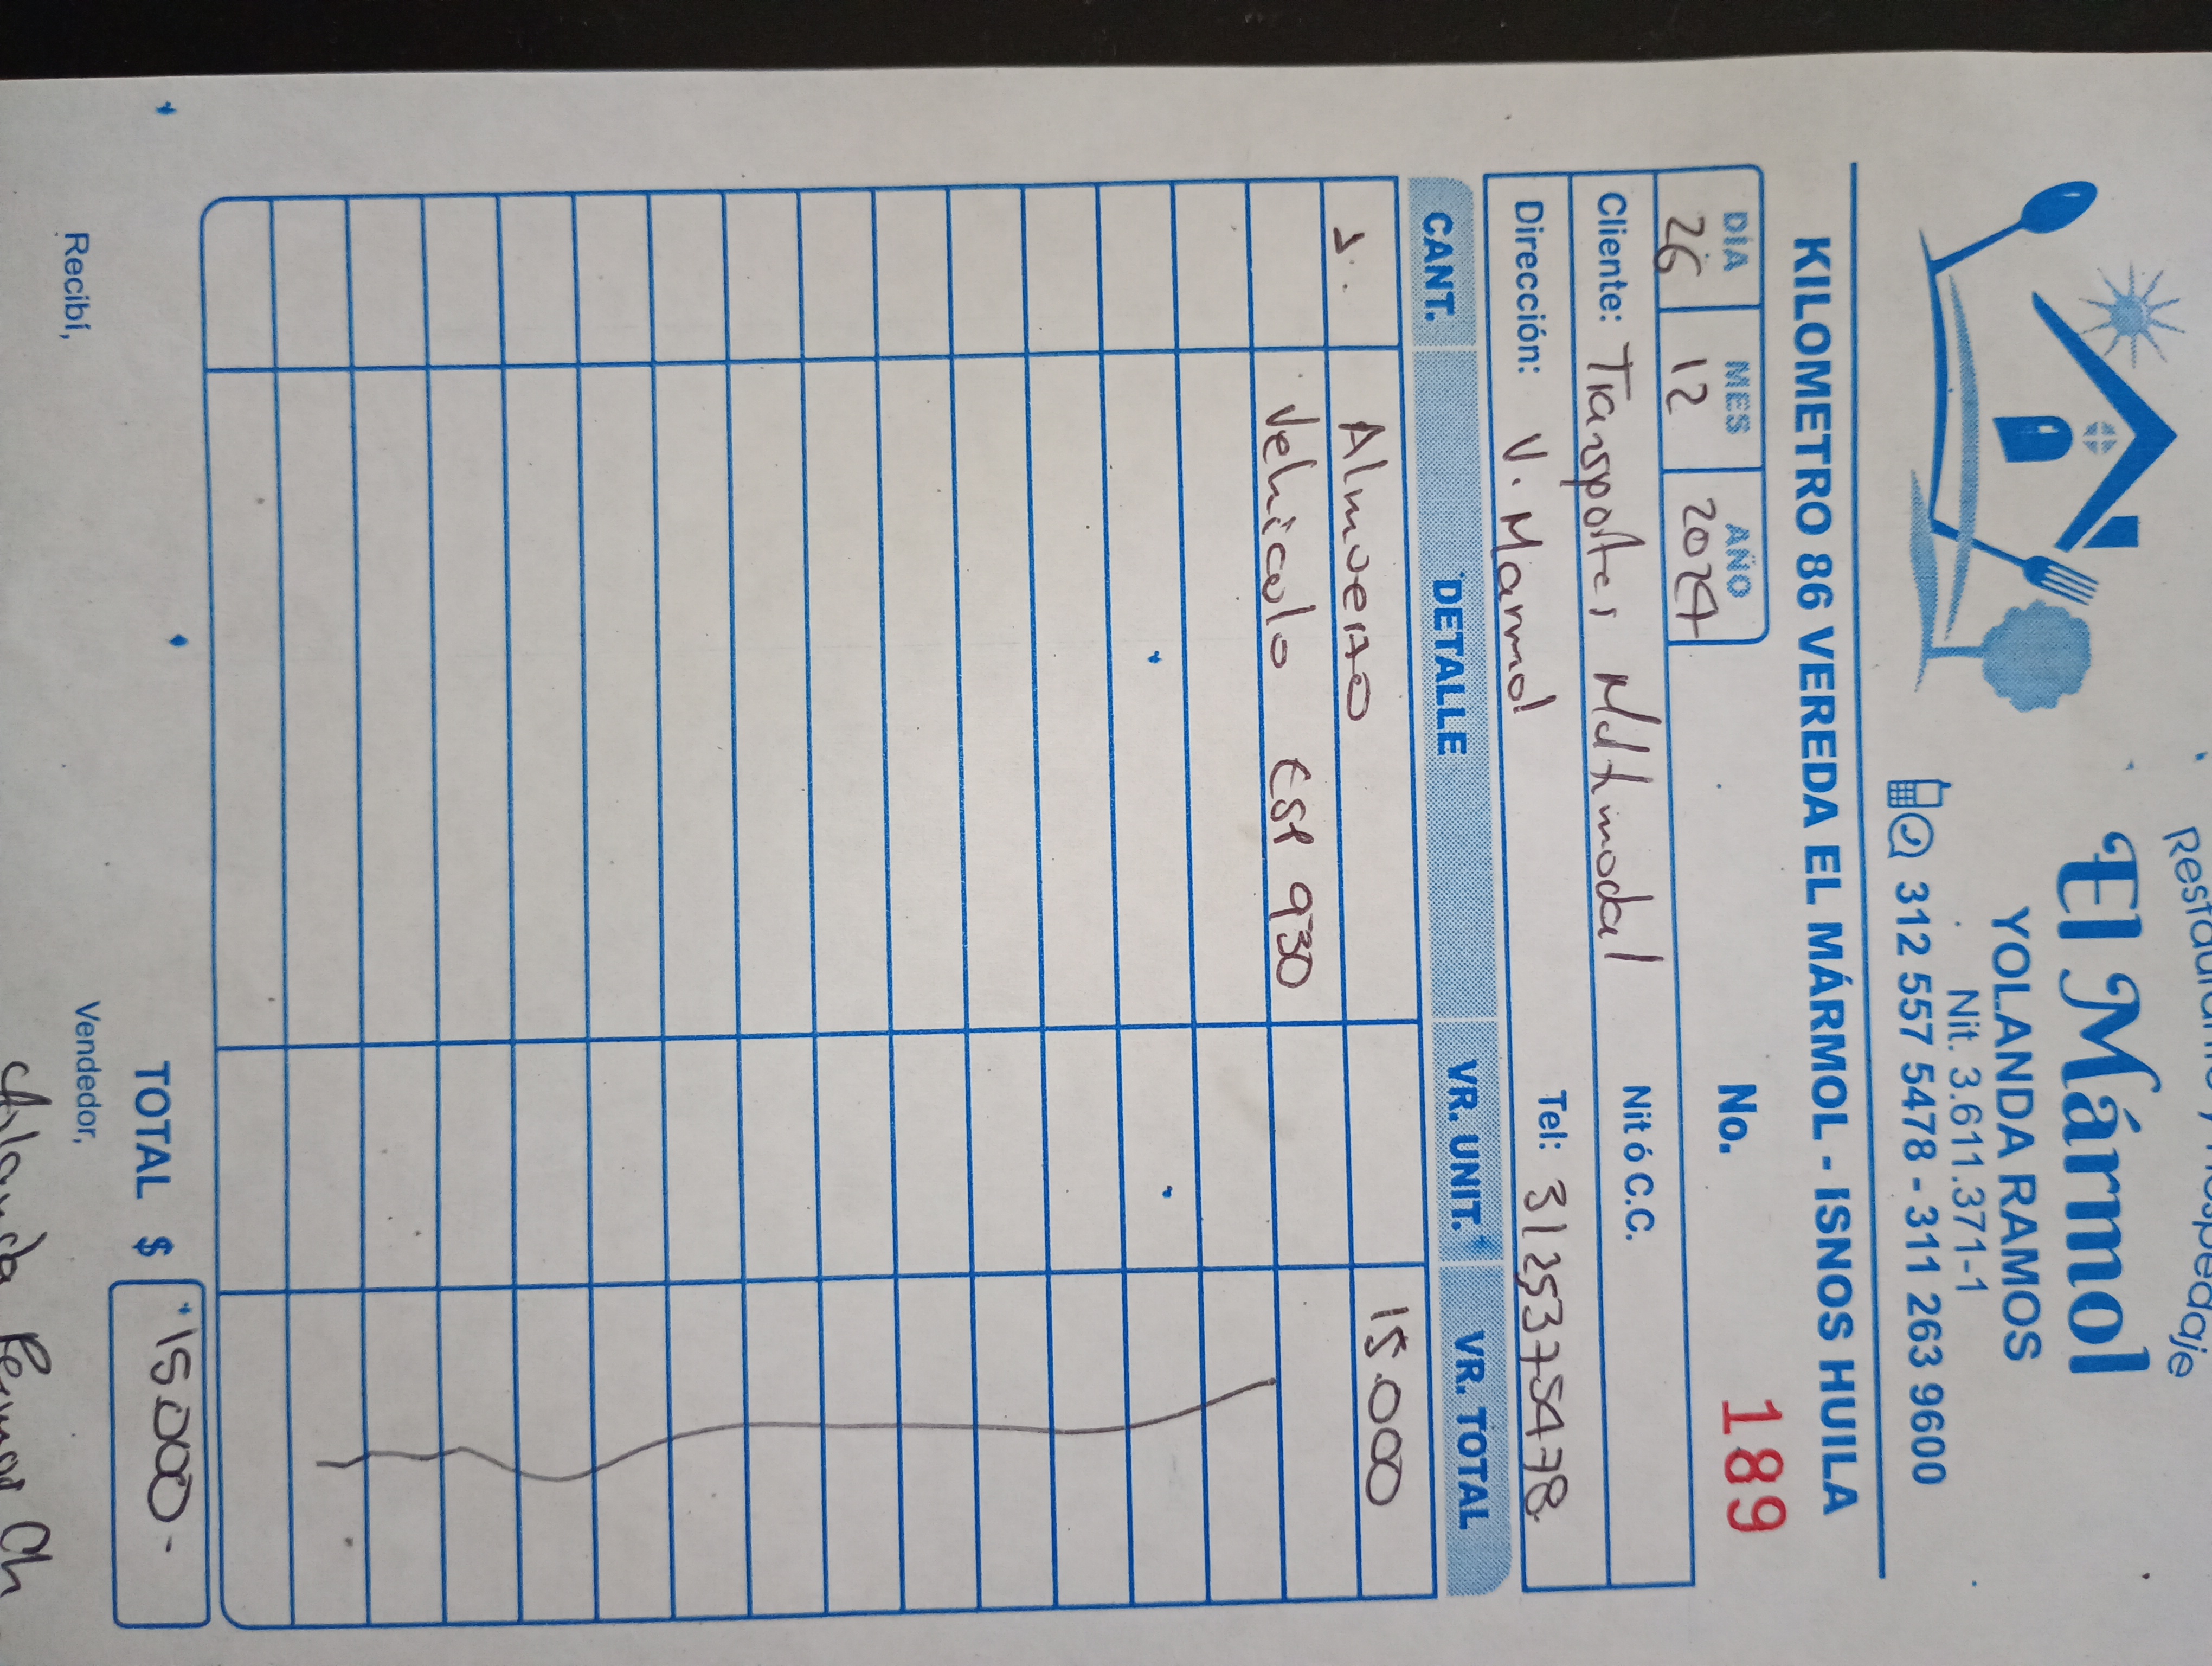 Restaurante y Hospedaje
El Mármol
YOLANDA RAMOS
Nit. 3.611.371-1
312 557 5478 - 311 263 9600
KILOMETRO 86 VEREDA EL MÁRMOL - ISNOS HUILA
DÍA MES AÑO
26 12 2024
No. 189
Cliente: Transportes Multimodal Nit ó C.C.
Dirección: V. Marmol Tel: 3125375478
CANT. DETALLE VR. UNIT. VR. TOTAL
1. Almuerzo 15.000
Vehiculo 930
TOTAL $ 15.000
Recibí, Vendedor,
Ramos